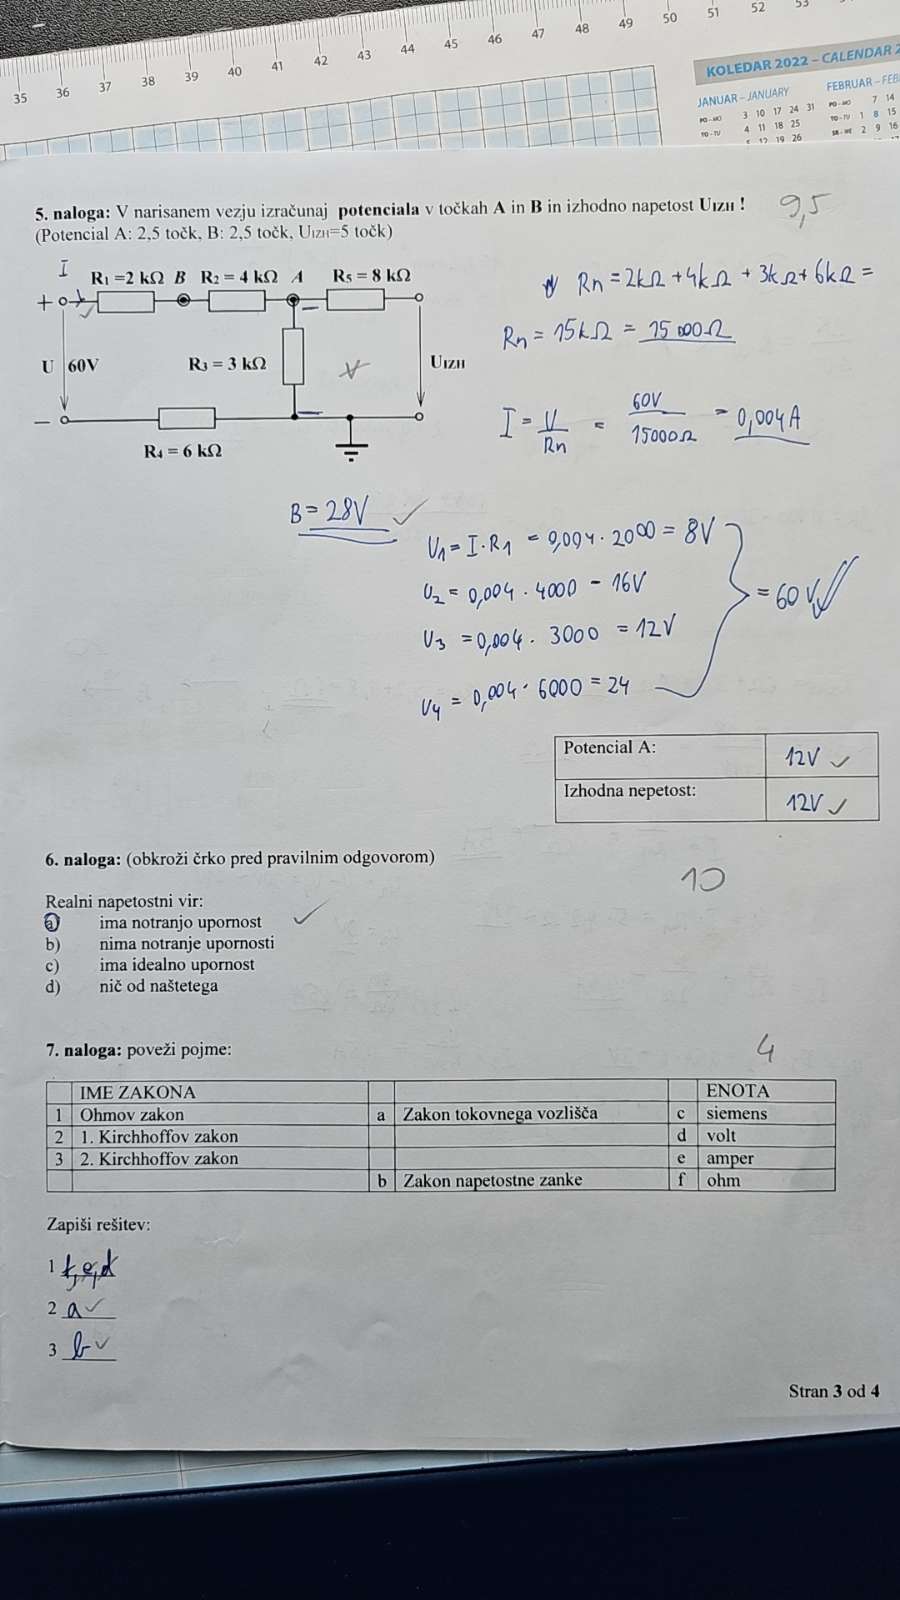 35 36 37 38 39 40 41 42 43 44 45 46 47 48 49 50 51 52 53
KOLEDAR 2022 – CALENDAR 2
JANUAR – JANUARY
PO - MO 3 10 17 24 31
TO - TU 4 11 18 25
5 12 19 26
FEBRUAR – FEB
PO - MO 7 14
TO - TU 1 8 15
SR - WE 2 9 16
5. naloga: V narisanem vezju izračunaj potenciala v točkah A in B in izhodno napetost UIZH !
9,5
(Potencial A: 2,5 točk, B: 2,5 točk, UIZH=5 točk)
I
R1 =2 kΩ B R2 = 4 kΩ A R5 = 8 kΩ
+
U 60V
R3 = 3 kΩ
UIZH
–
R4 = 6 kΩ
Rn = 2kΩ + 4kΩ + 3kΩ + 6kΩ =
Rn = 15kΩ = 15000Ω
I = U/Rn = 60V/15000Ω = 0,004A
B = 28V
U1 = I · R1 = 0,004 · 2000 = 8V
U2 = 0,004 · 4000 - 16V
U3 = 0,004 · 3000 = 12V
U4 = 0,004 · 6000 = 24
= 60V
Potencial A: 12V
Izhodna nepetost: 12V
6. naloga: (obkroži črko pred pravilnim odgovorom)
10
Realni napetostni vir:
a) ima notranjo upornost
b) nima notranje upornosti
c) ima idealno upornost
d) nič od naštetega
7. naloga: poveži pojme:
4
IME ZAKONA ENOTA
1 Ohmov zakon a Zakon tokovnega vozlišča c siemens
2 1. Kirchhoffov zakon d volt
3 2. Kirchhoffov zakon e amper
b Zakon napetostne zanke f ohm
Zapiši rešitev:
1 f, e, d
2 a
3 b
Stran 3 od 4